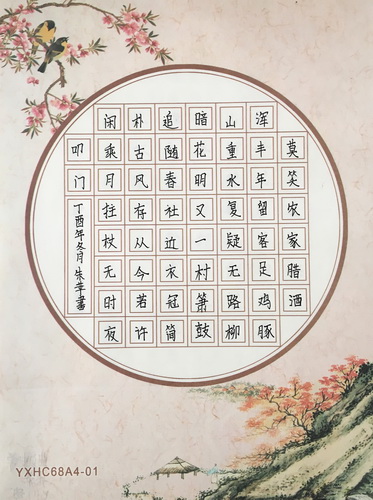 莫笑农家腊酒
浑丰年留客足鸡豚
山重水复疑无路柳
暗花明又一村箫鼓
追随春社近衣冠简
朴古风存从今若许
闲乘月拄杖无时夜
叩门
丁酉年冬月朱苹書
YXHC68A4-01